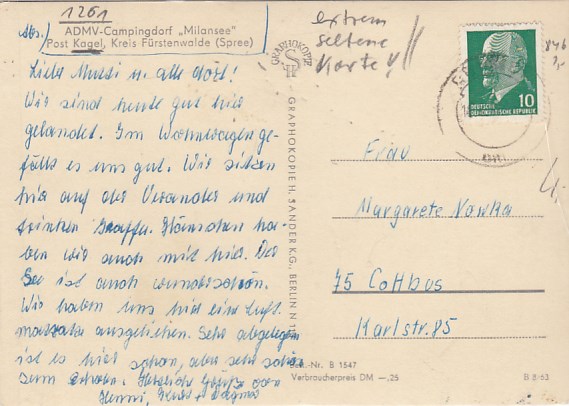 1261
Abs.:
ADMV-Campingdorf „Milansee"
Post Kagel, Kreis Fürstenwalde (Spree)
Liebe Mutti u. alle dort!
Wir sind heute gut hier
gelandet. Im Wohnwagen ge-
fällt es uns gut. Wir sitzen
hier auf der Veranda und
trinken Kaffee. Hänschen ha-
ben wir auch mit hier. Der
See ist auch wunderschön.
Wir haben uns hier eine Luft-
matratze ausgeliehen. Sehr abgelegen
ist es hier schon, aber sehr schön
zum Erholen. Herzliche Grüße von
Henni, + Dagmar
GRAPHOKOPIE
GRAPHOKOPIE H. SANDER K.G., BERLIN N
extrem
seltene
Karte!!
846
DEUTSCHE
DEMOKRATISCHE REPUBLIK
10
Frau
Margarete Nowka
75 Cottbus
Karlstr. 85
Best.-Nr. B 1547
Verbraucherpreis DM —,25
B 8·63